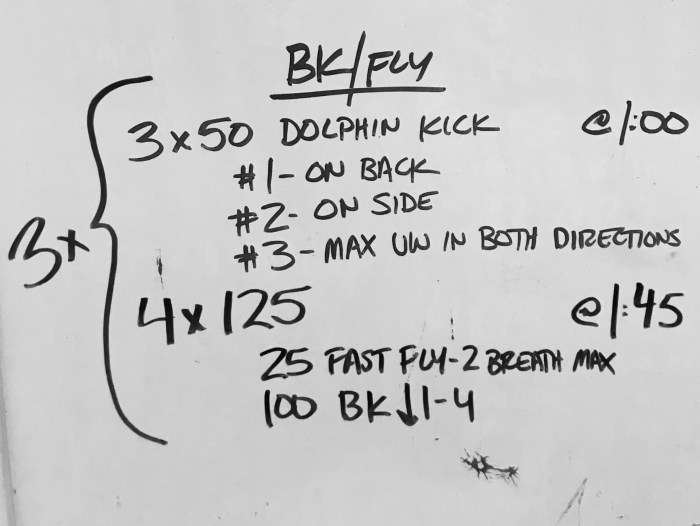 BK/FLY
3 x 50 DOLPHIN KICK @ 1:00
#1 - ON BACK
#2 - ON SIDE
#3 - MAX UW IN BOTH DIRECTIONS
3x
4 x 125 @ 1:45
25 FAST FLY - 2 BREATH MAX
100 BK ↓ 1-4